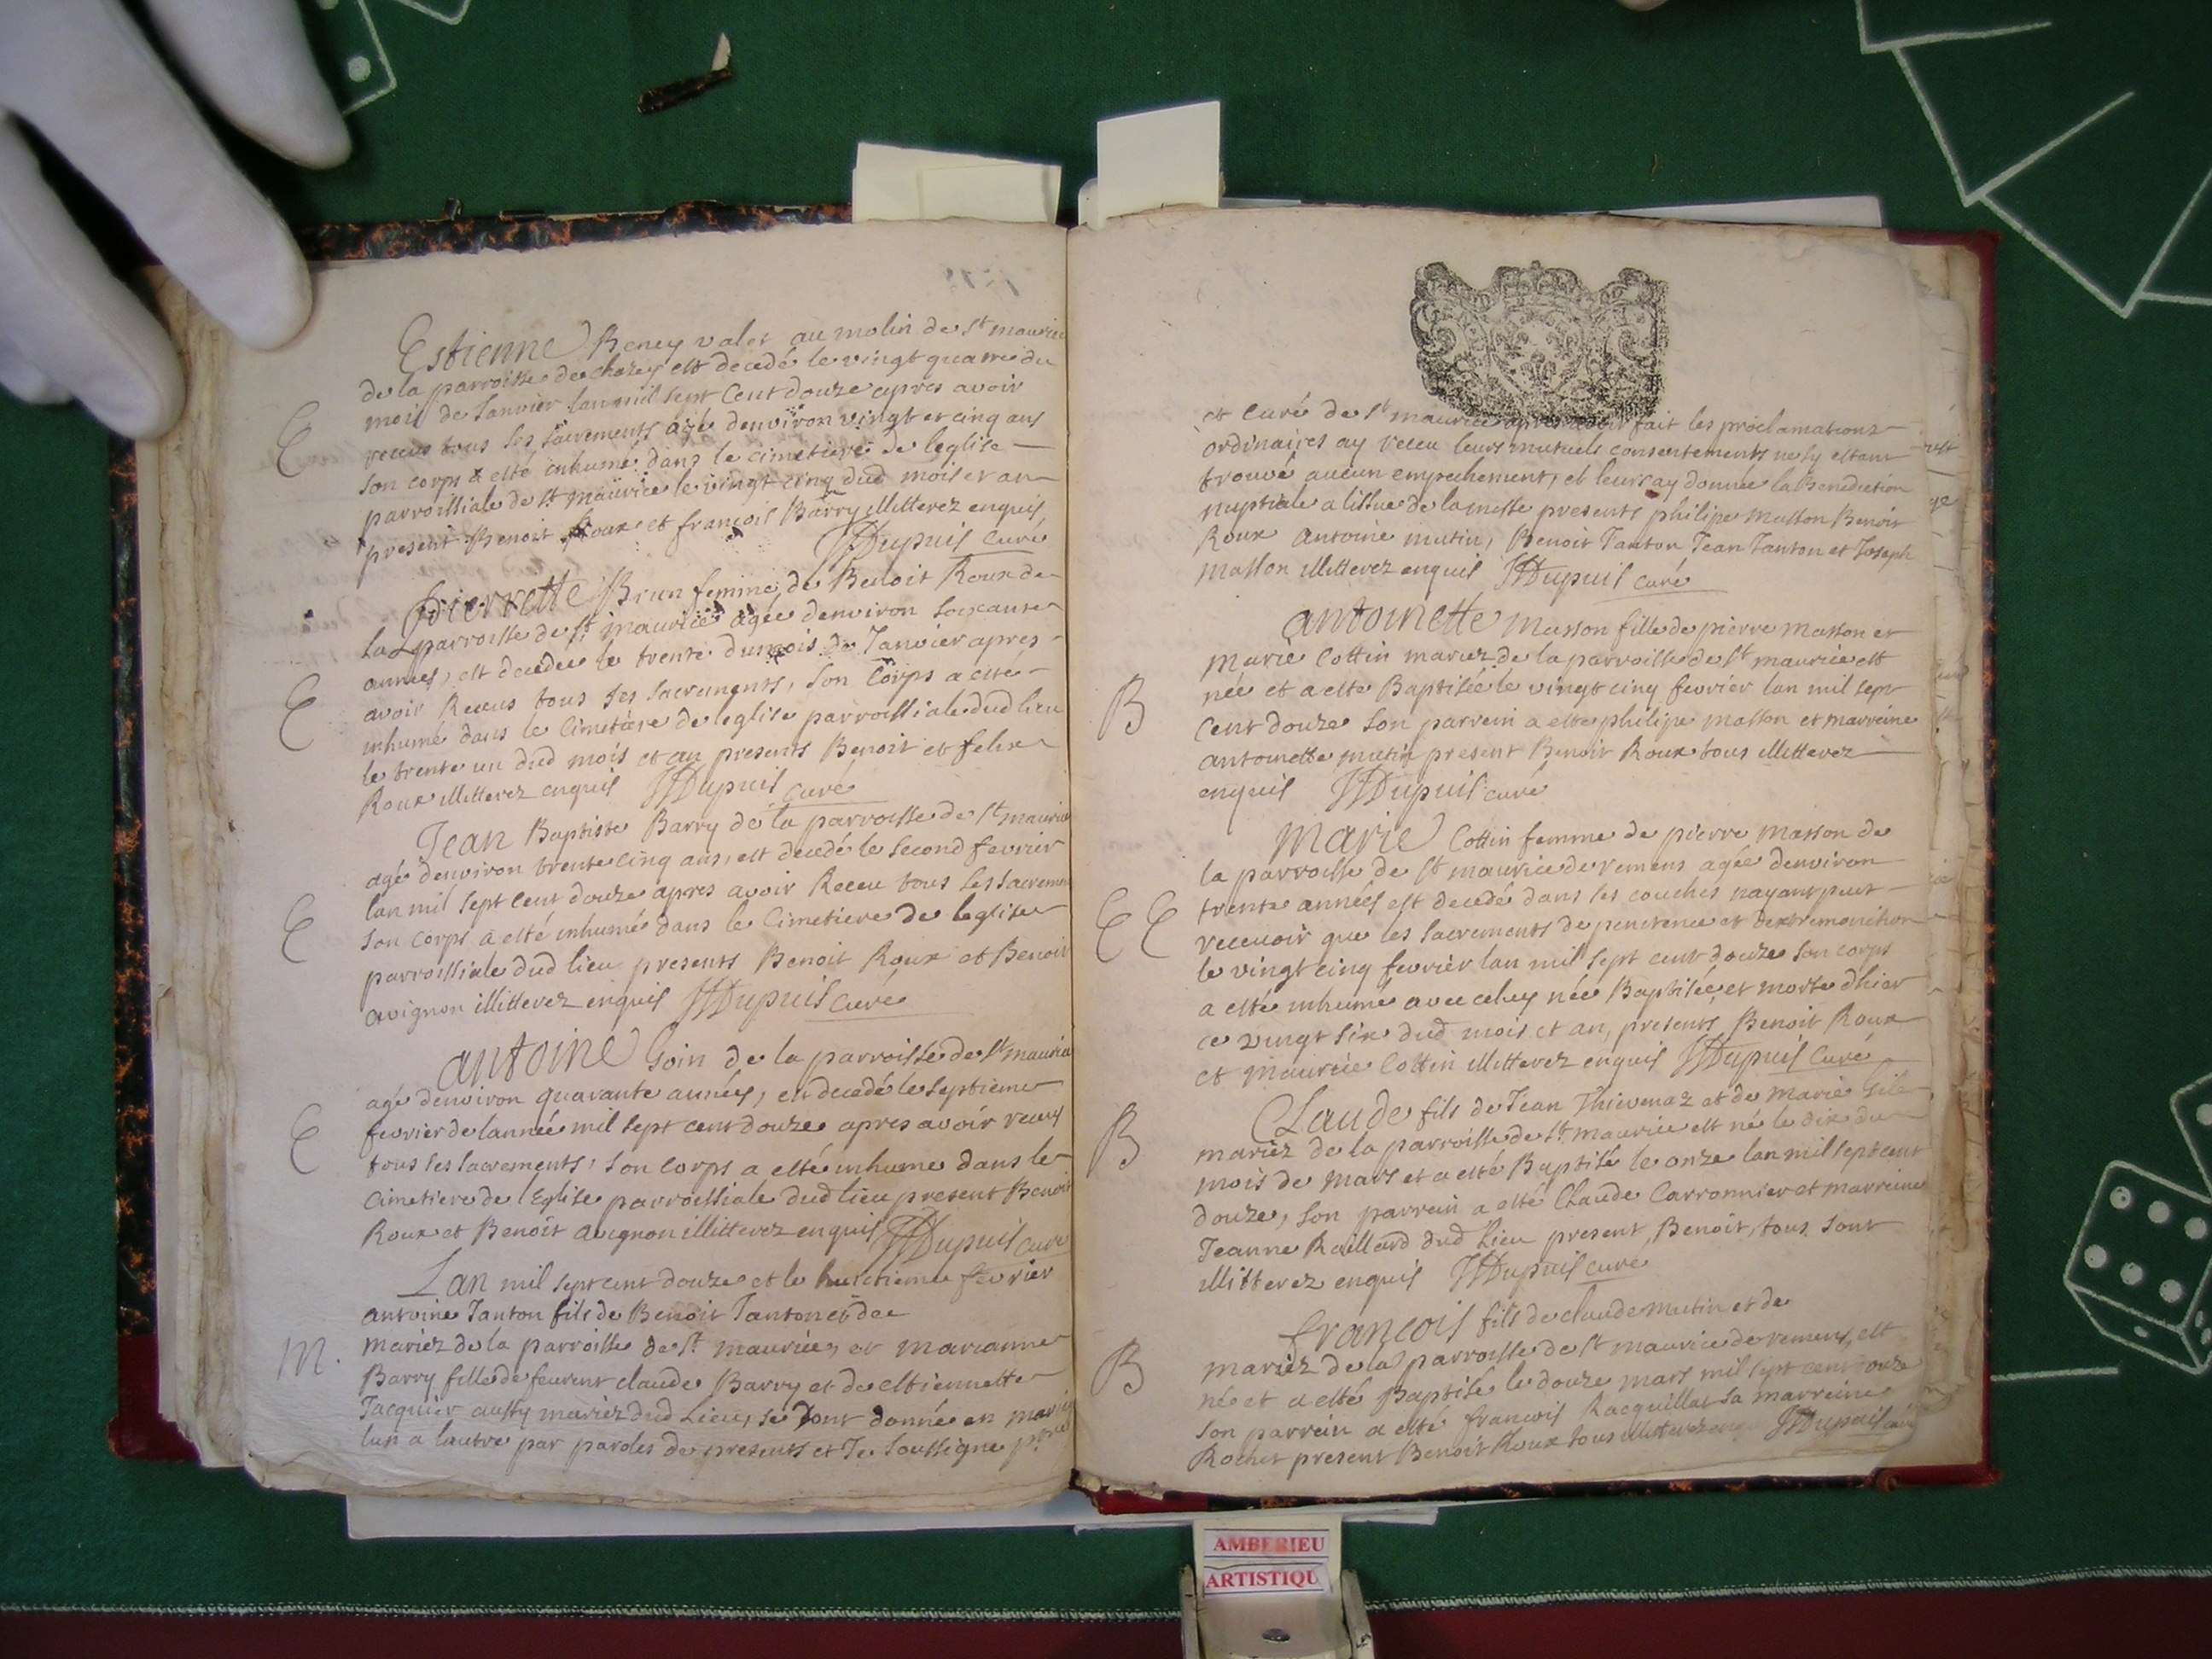 Estienne Beney valet au molin de St maurice
de la parroisse de chazey est decedé le vingt quatre du
mois de Janvier lan mil sept Cent douze apres avoir
receus tous ses sacrements agé denviron vingt et cinq ans
E
son corps a esté inhumé dans le cimetiere de leglise
parroissiale de St maurice le vingt cinq dud mois et an
present Benoit Roux et françois Barry illitterez enquis
Dupuis Curé
Pierrette Brun femme de Benoit Roux de
la parroisse de St maurice agée denviron soixante
années, est decedée le trente du mois de Janvier apres
E
avoir Receus tous ses sacrements, son Corps a esté
inhumé dans le Cimetiere de leglise parroissiale dud lieu
le trente un dud mois et an presents Benoit et felix
Roux illitterez enquis Dupuis curé
Jean Baptiste Barry de la parroisse de St maurice
agé denviron trente cinq ans, est decedé le second fevrier
lan mil sept cent douze apres avoir Receu tous les sacremen
E
son corps a esté inhumé dans le Cimetiere de leglise
parroissiale dud lieu presents Benoit Roux et Benoit
avignon illitterez enquis Dupuis Curé
antoine Goin de la parroisse de St maurice
agé denviron quarante années, est decedé le septieme
E
fevrier de lannée mil sept cent douze apres avoir receus
tous ses sacrements, son corps a esté inhumé dans le
Cimetiere de l'Eglise parroissiale dud lieu present Benoit
Roux et Benoit avignon illitterez enquis Dupuis curé
Lan mil sept cent douze et le huictieme fevrier
antoine Tanton fils de Benoit Tanton et de
M.
mariez de la parroisse de St maurice, et marianne
Barry fille de feurent claude Barry et de estiennette
Jacquier aussy mariez dud Lieu, se sont donnée en mariage
lun a lautre par paroles de presents et Je soussigne
et Curé de St maurice apres avoir fait les proclamations
ordinaires ay receu leurs mutuels consentements ne sy estant
trouvé aucun empechement, et leurs ay donnée la Benediction
nuptiale a lissue de la messe presents philipe masson Benoit
Roux Antoine mutin, Benoit Tanton Jean Tanton et Joseph
masson illitterez enquis Dupuis curé
antoinette masson fille de pierre masson et
marie Cottin mariez de la parroisse de St maurice est
B
née et a esté Baptisée le vingt cinq fevrier lan mil sept
cent douze son parrein a esté philipe masson et marreine
antoinette mutin present Benoit Roux tous illitterez
enquis Dupuis curé
Marie Cottin femme de pierre masson de
la parroisse de St maurice de remens agée denviron
trente années est decedé dans ses couches nayant peut
E E
recevoir que les sacrements de penitence et dextremonction
le vingt cinq fevrier lan mil sept cent douze son corps
a esté inhumé avec celuy née Baptisée et morte dhier
ce vingt six dud mois et an, presents Benoit Roux
et maurice Cottin illitterez enquis Dupuis Curé
Claude fils de Jean Thievenaz et de Marie
B
mariez de la parroisse de St maurice est né le dix du
mois de mars et a esté Baptisé le onze lan mil sept cent
douze, son parrein a esté Claude Carronnier et marreine
Jeanne Raillard dud Lieu present, Benoit, tous sont
illitterez enquis Dupuis curé
francois fils de claude mutin et de
B
mariez de la parroisse de St maurice de remens, est
né et a esté Baptisé le douze mars mil sept cent douze
son parrein a esté francois Racquillat sa marreine
Rochet present Benoit Roux tous illitterez Dupuis
AMBERIEU
ARTISTIQU